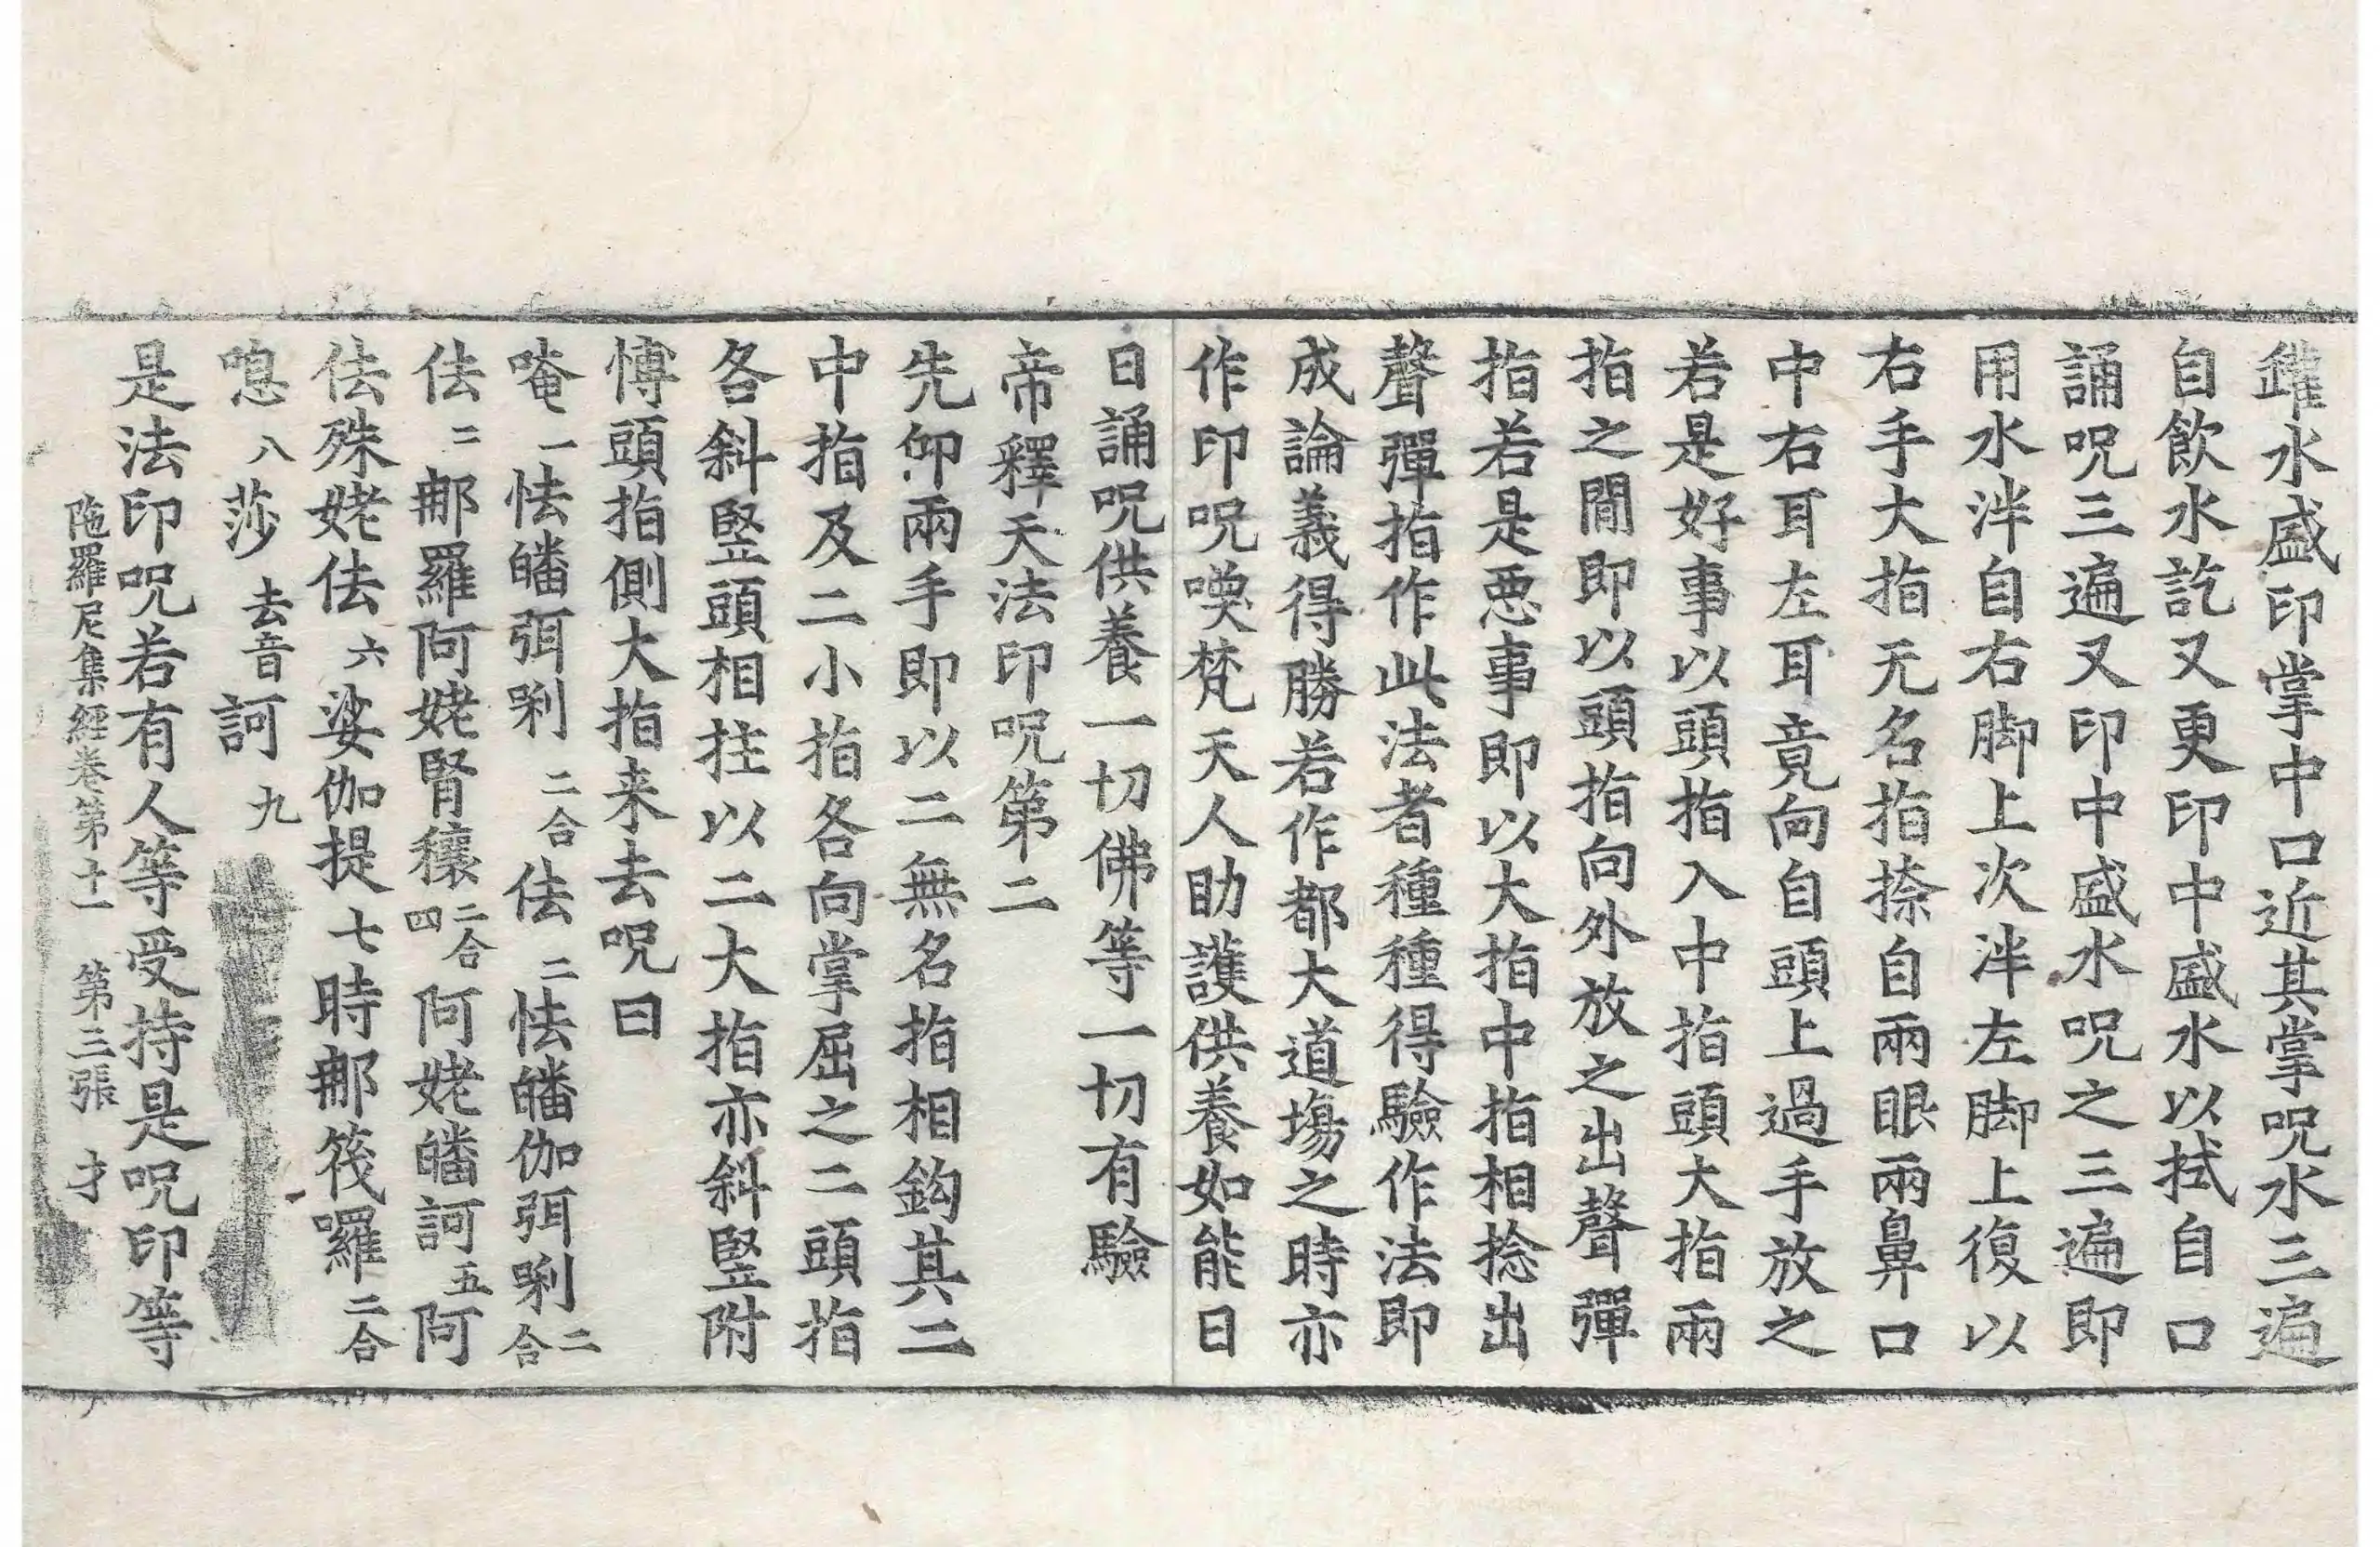 鑵水盛印掌中口近其掌呪水三遍
自飲水訖又更印中盛水以拭自口
誦呪三遍又印中盛水呪之三遍即
用水泮自右脚上次泮左脚上復以
右手大指无名指捺自兩眼兩鼻口
中右耳左耳竟向自頭上過手放之
若是好事以頭指入中指頭大指兩
指之間即以頭指向外放之出聲彈
指若是惡事即以大指中指相捻出
聲彈指作此法者種種得驗作法即
成論義得勝若作都大道場之時亦
作印呪喚梵天人助護供養如能日
日誦呪供養一切佛等一切有驗
帝釋天法印呪第二
先仰兩手即以二無名指相鈎其二
中指及二小指各向掌屈之二頭指
各斜竪頭相拄以二大指亦斜竪附
愽頭指側大指来去呪曰
唵一怯皤弭唎二合佉二怯皤伽弭唎二合
佉二那羅阿姥腎穰二合四阿姥皤訶五阿
佉殊姥佉六娑伽提七時那筏囉二合
㗭八莎去音訶九
是法印呪若有人等受持是呪印等
陁羅尼集經卷第十一 第三張 才